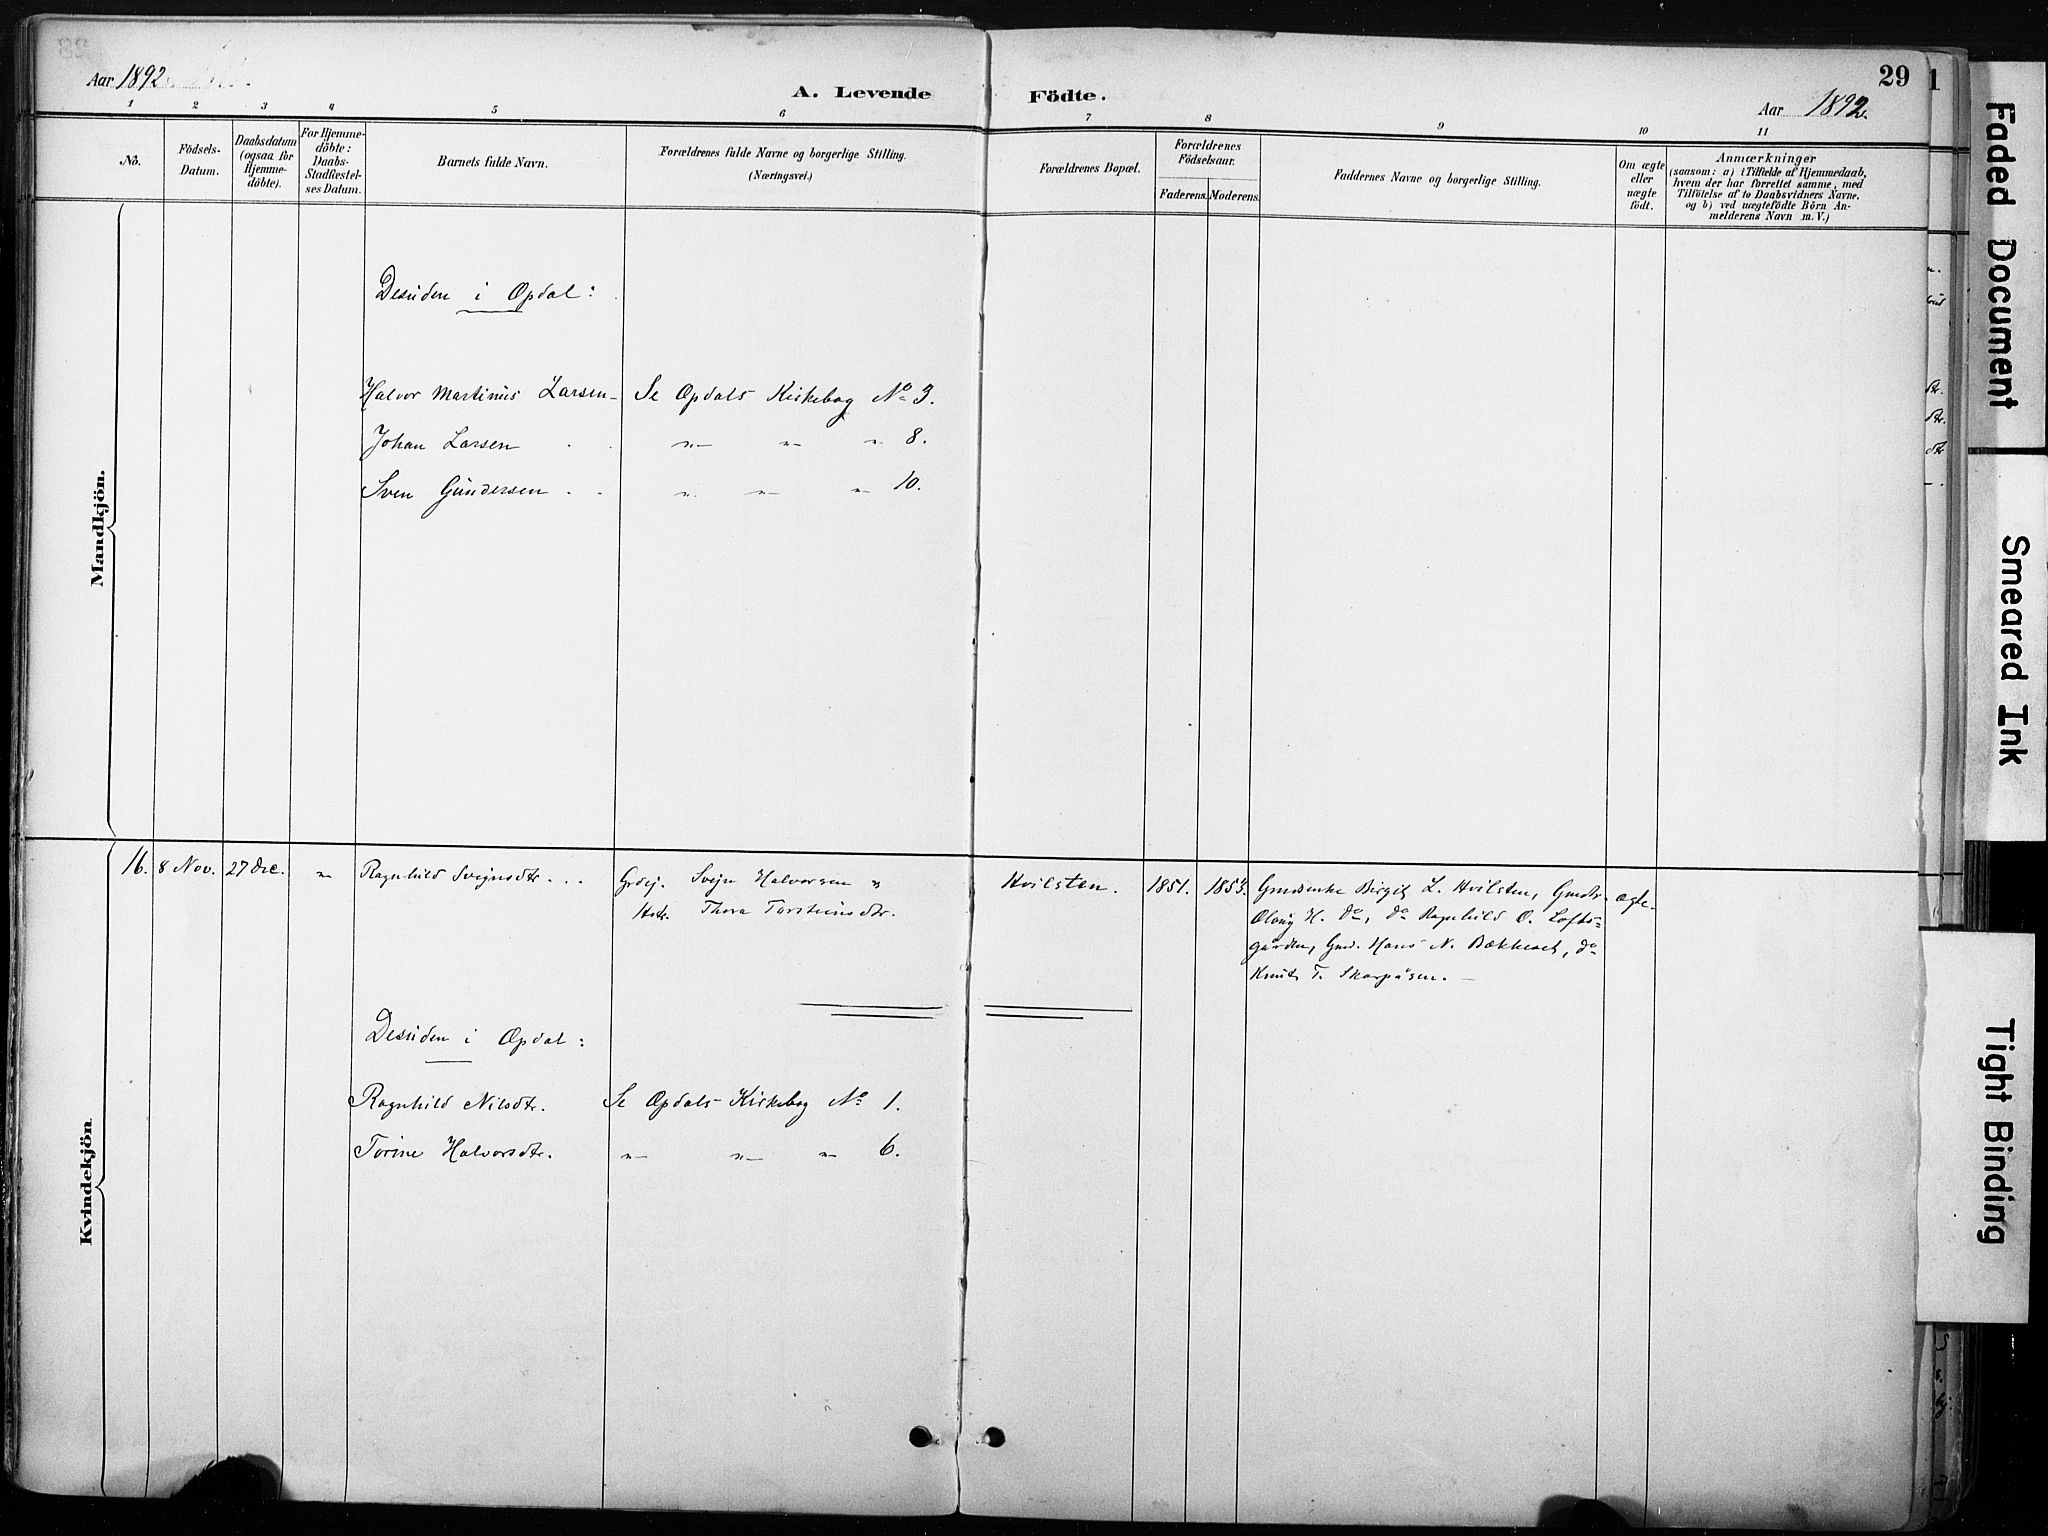 Aar 1892
A. Levende Födte.
29
Aar 1892.
1 2 3 4 5 6 7 8 9 10 11
No.
Födsels-Datum.
Daabsdatum (ogsaa for Hjemme-döbte).
For Hjemme-döbte: Daabs-Stadfæstel-ses Datum.
Barnets fulde Navn.
Forældrenes fulde Navne og borgerlige Stilling.
(Næringsvei.)
Forældrenes Bopæl.
Forældrenes Födselsaar.
Faderens. Moderens.
Faddernes Navne og borgerlige Stilling.
Om ægte eller uægte födt.
Anmærkninger
(saasom: a) i Tilfælde af Hjemmedaab,
hvem der har forrettet samme, med
Tilföielse af to Daabsvidners Navne.
og b) ved uægtefödte Börn An-
melderens Navn m. V.)
Mandkjön.
Desuden i Opdal:
Halvor Martinus Larsen - Se Opdals Kirkebog No 3.
Johan Larsen . . „— „— „— 8.
Sven Gundersen . . „— „— „— 10.
Kvindekjön.
16. 8 Nov. 27 Dec. „ Ragnhild Svejnsdtr. . . Grdej. Svejn Halvorsen og Kvilsten. 1851. 1853. Gmdsenke Birgit L. Hvilsten, Gmdtr. ægte.
Hstr. Thora Torsteinsdtr. Olaug H. do, do Ragnhild O. Lofts=
gården, Gmd. Hans N. Bækkeset, do
Knut T. Skarpåsen. —
Desuden i Opdal:
Ragnhild Nilsdtr. Se Opdals Kirkebog No 1.
Torine Halvorsdtr. „— „— „— 6.
Faded Document
Smeared Ink
Tight Binding